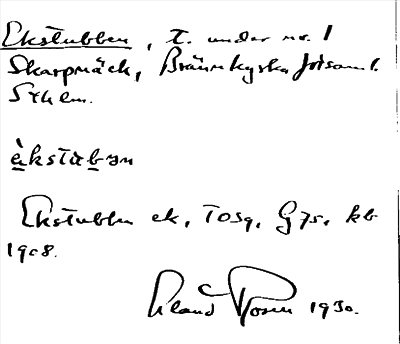 Ekstubben, t. under nr. 1
Skarpnäck, Brännkyrka församl.
Sthlm.
èkstubən
Ekstubben ek, Torsg, G 75, kb
1908.
Roland Rosén 1930.